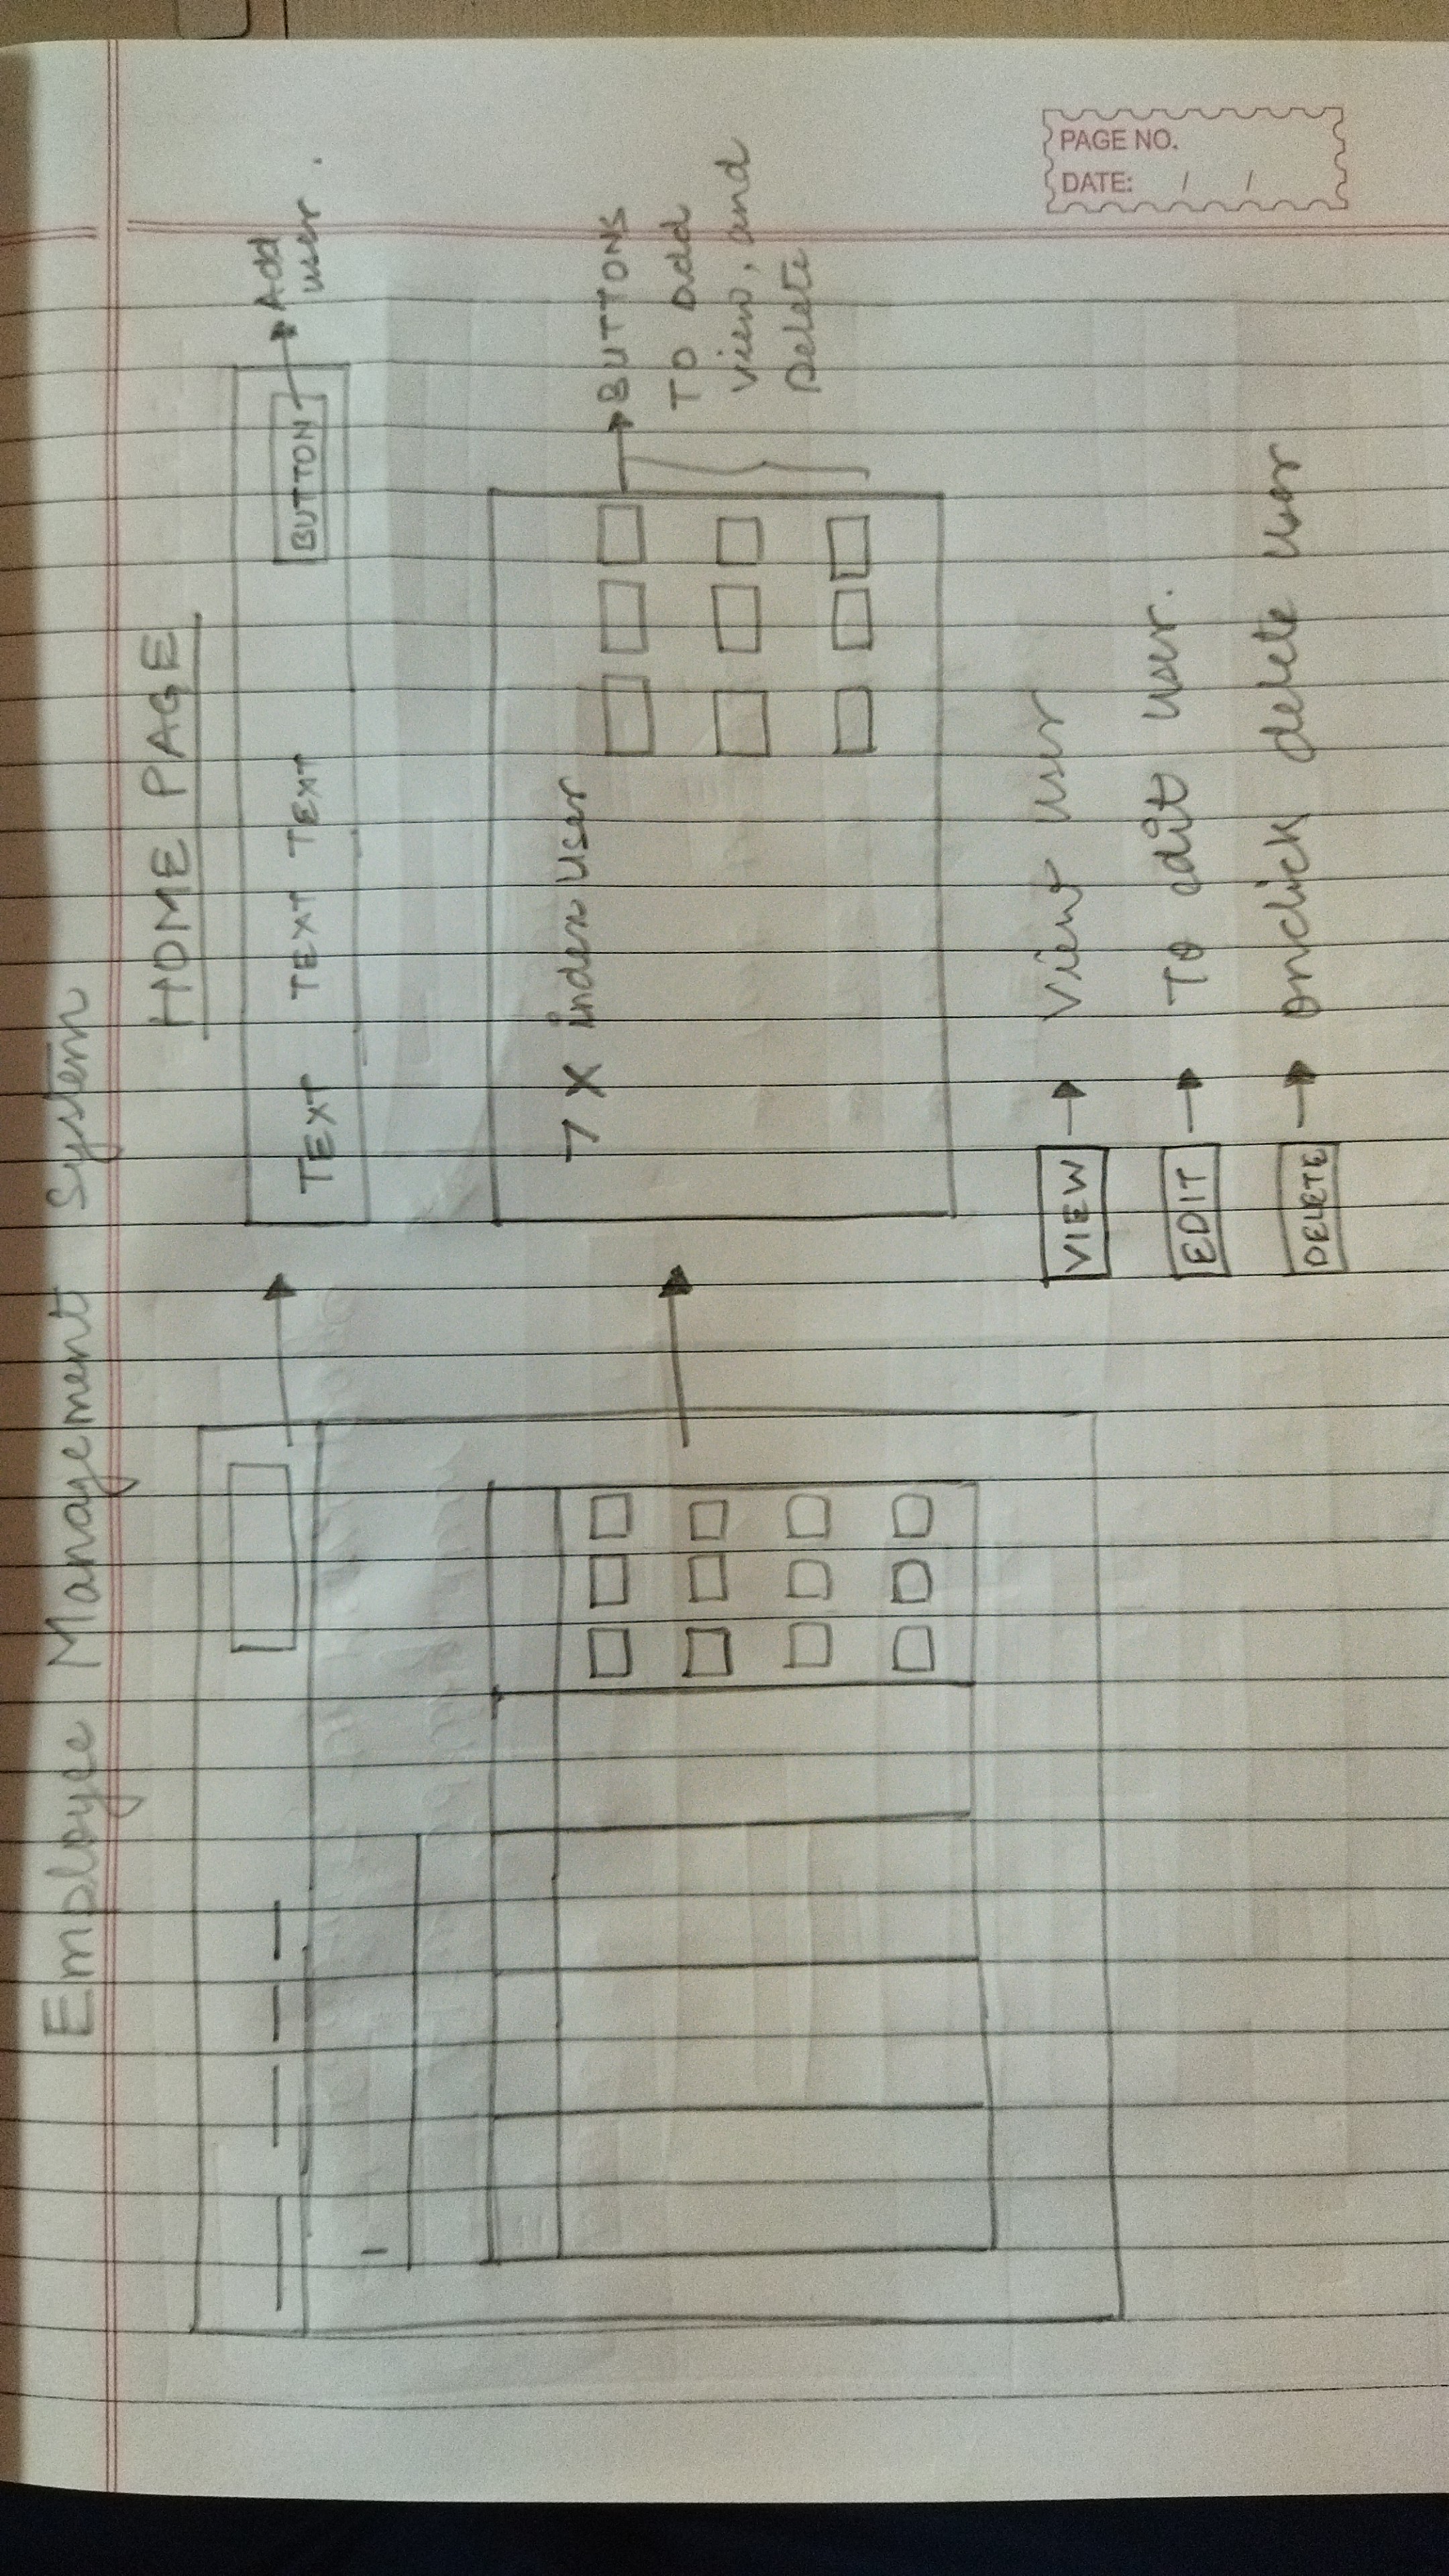 Employe Management System
HOME PAGE
PAGE NO.
DATE: / /
TEXT TEXT TEXT BUTTON
Add
user.
7 X index user
BUTTONS
TO add
view, and
Delete
VIEW View user
EDIT TO edit user.
DELETE onclick delete user